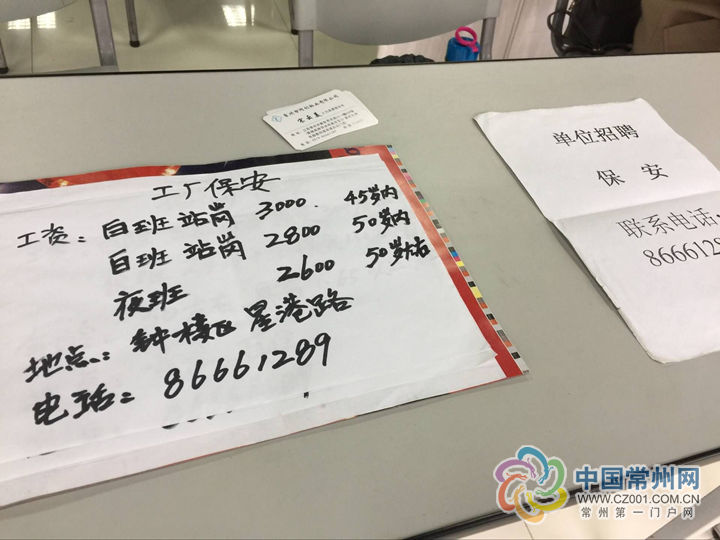 工厂保安
工资：白班站岗 3000. 45岁内
白班 站岗 2800 50岁内
夜班 2600 50岁左右
地点：钟楼区星港路
电话：86661289
单位招聘
保 安
联系电话
866612
中国常州网
WWW.CZ001.COM.CN
常州第一门户网